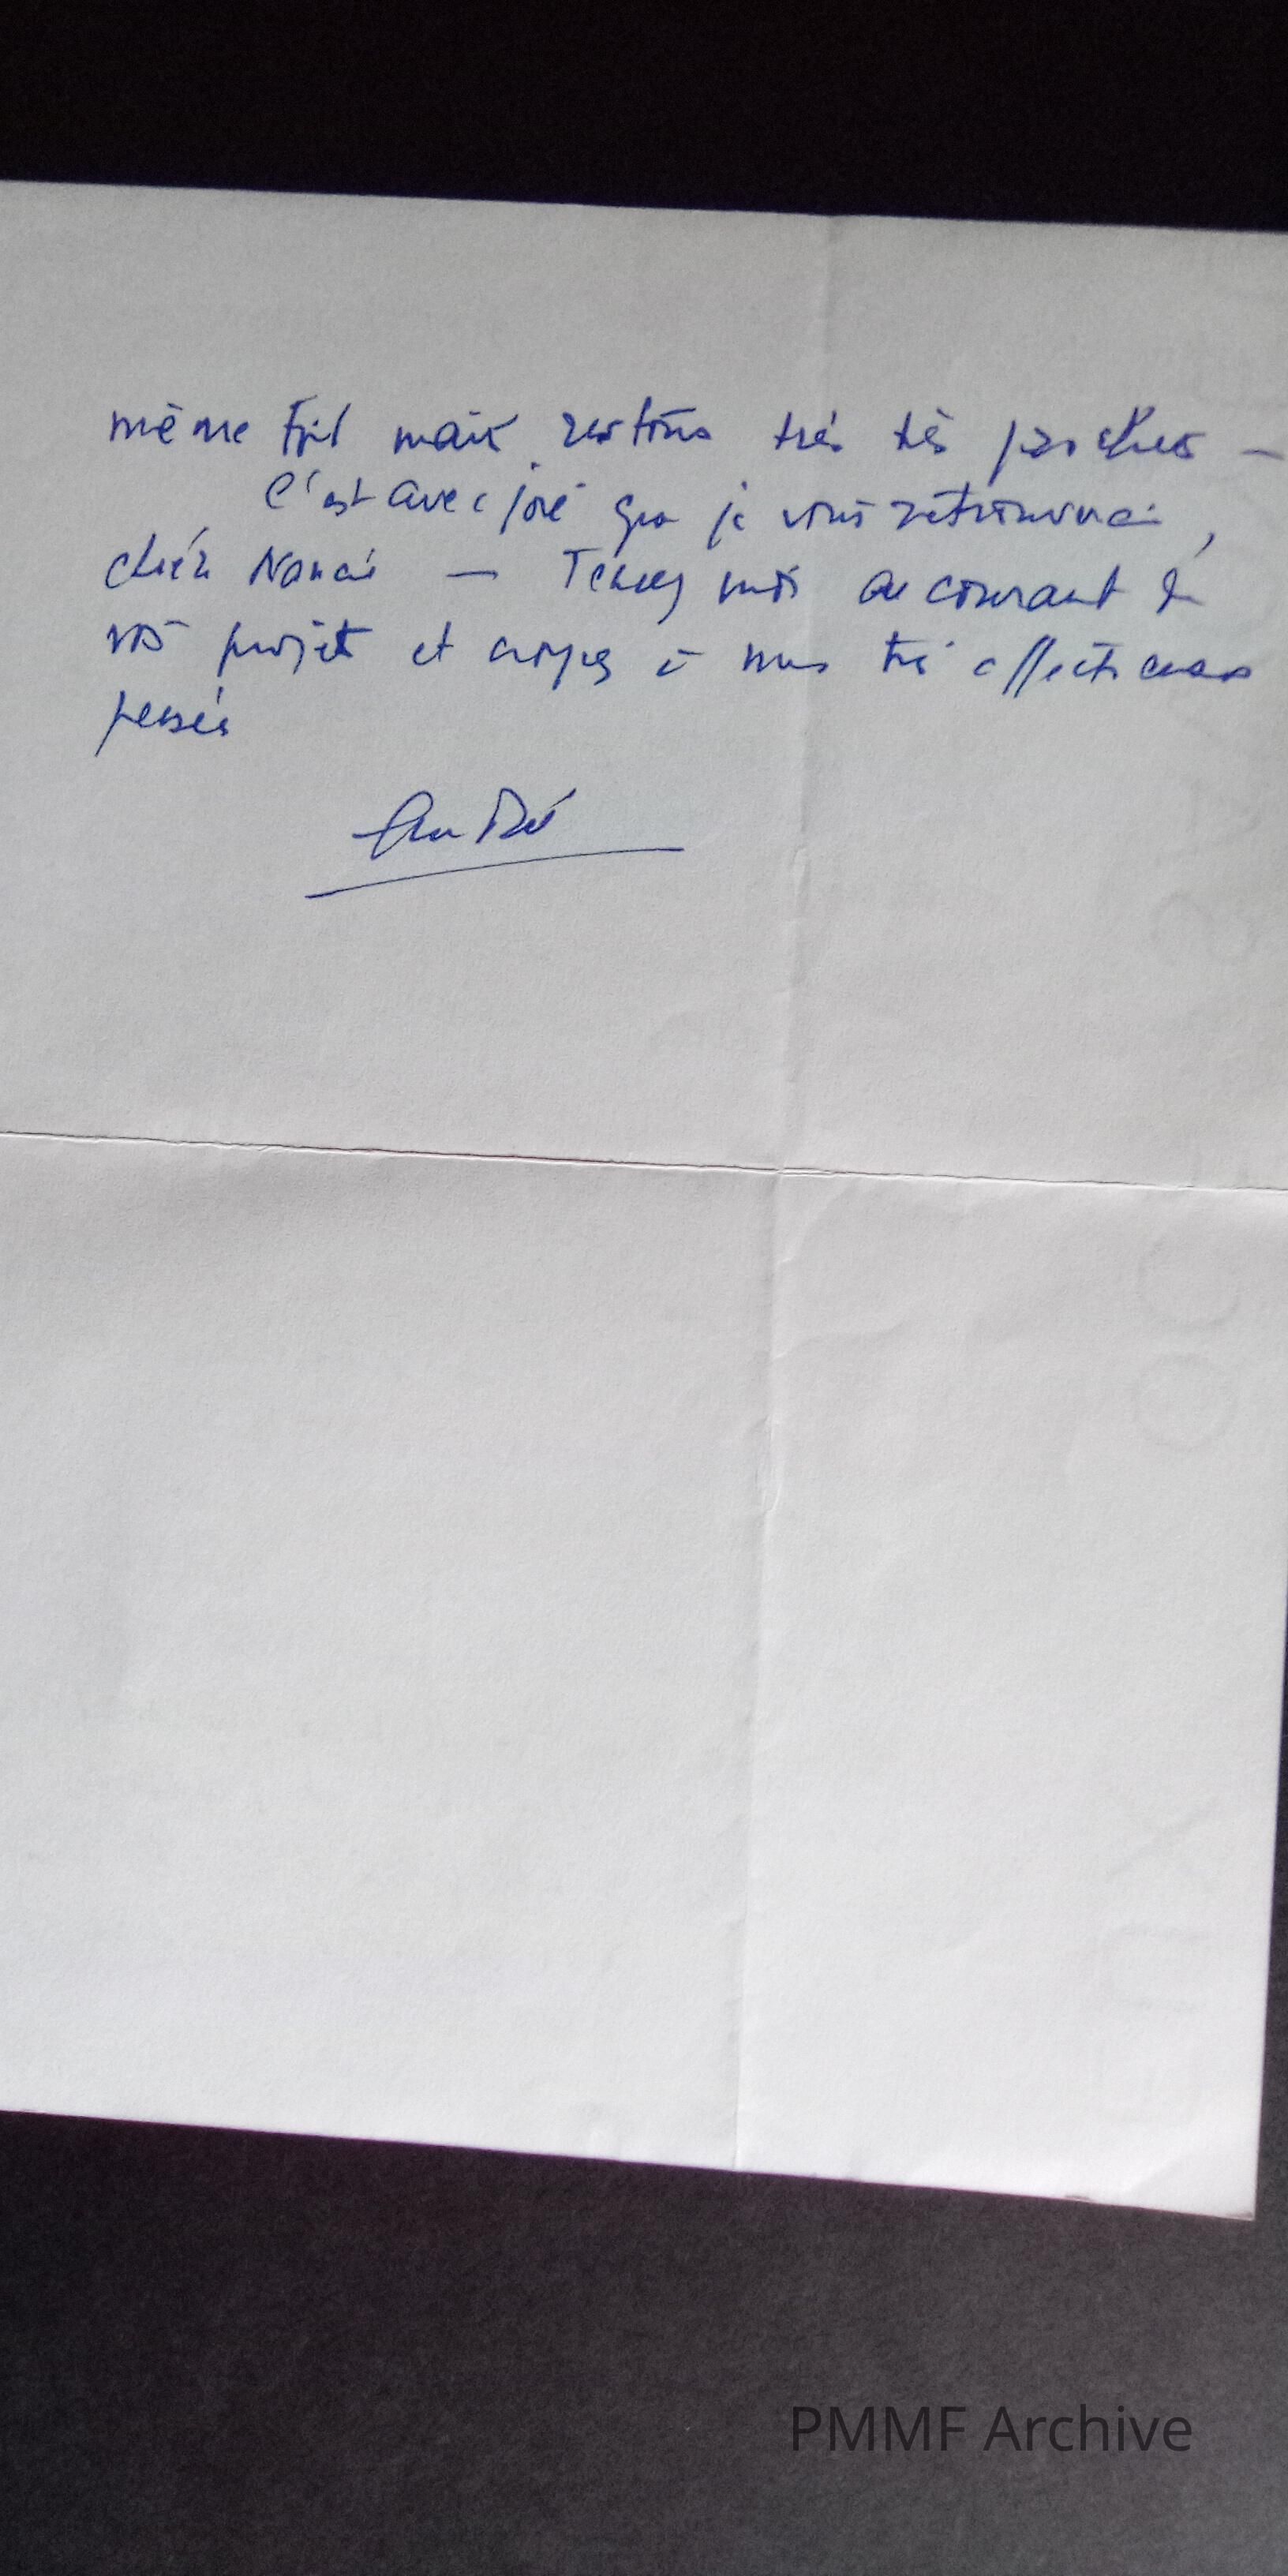 même toit mais restons très très proches —
C'est avec joie que je vous retrouverai,
chère Nanie — Tenez moi au courant de
vos projets et croyez à mes très affectueuses
pensées
André
PMMF Archive